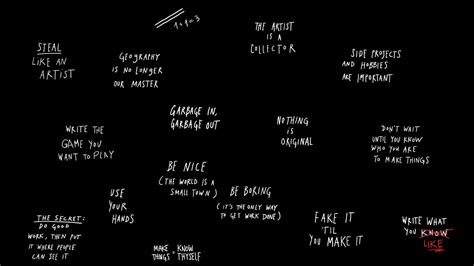 1+1=3
THE ARTIST
IS A
COLLECTOR
STEAL
LIKE AN
ARTIST
GEOGRAPHY
IS NO LONGER
OUR MASTER
SIDE PROJECTS
AND HOBBIES
ARE IMPORTANT
GARBAGE IN,
GARBAGE OUT
NOTHING
IS
ORIGINAL
WRITE THE
GAME YOU
WANT TO PLAY
DON'T WAIT
UNTIL YOU KNOW
WHO YOU ARE
TO MAKE THINGS
BE NICE
(THE WORLD IS A
SMALL TOWN)
USE
YOUR
HANDS
BE BORING
(IT'S THE ONLY WAY
TO GET WORK DONE)
THE SECRET:
DO GOOD
WORK, THEN PUT
IT WHERE PEOPLE
CAN SEE IT
MAKE KNOW
THINGS THYSELF
FAKE IT
'TIL
YOU MAKE IT
WRITE WHAT
YOU KNOW
LIKE